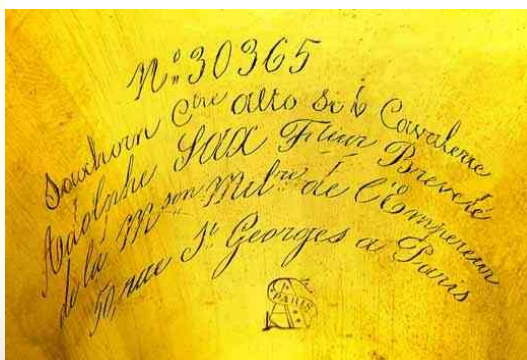 N.º 30365
Saxhorn C.tre alto Si b Cavalerie
Adolphe Sax Fteur Breveté
de la M.son Mil.re de l'Empereur
50, rue St Georges a Paris
PARIS